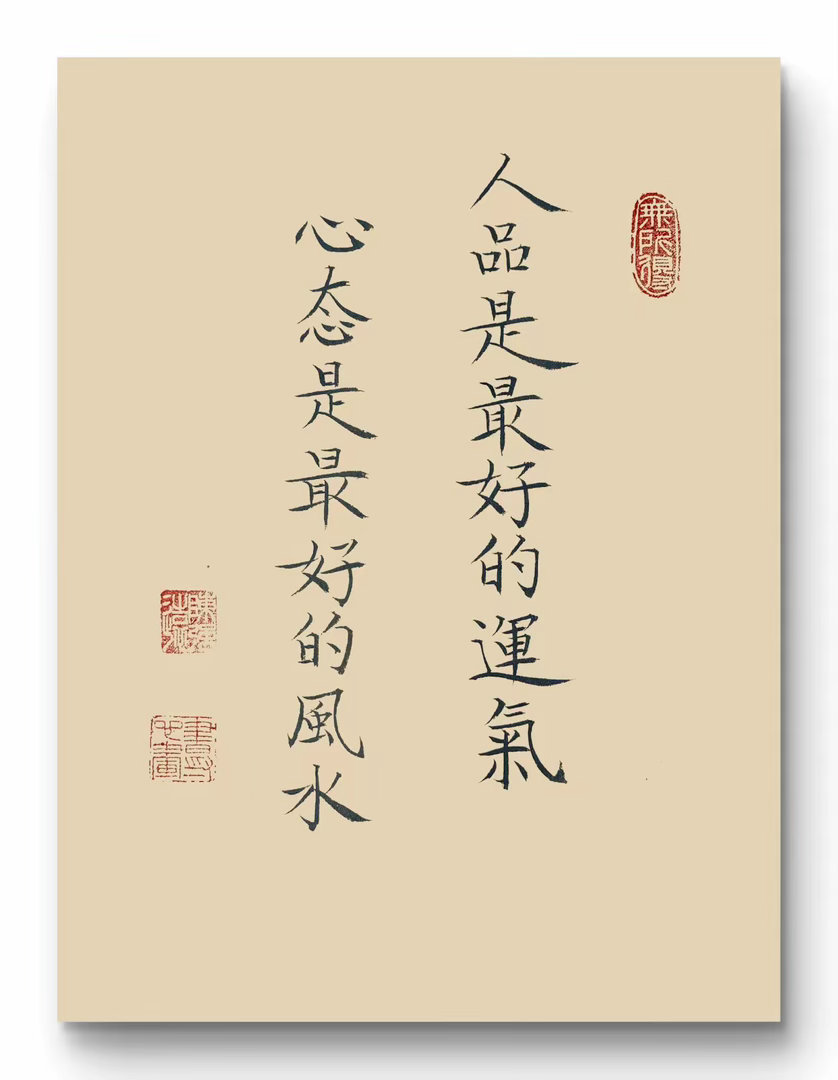 人品是最好的運氣
心态是最好的風水
無所得